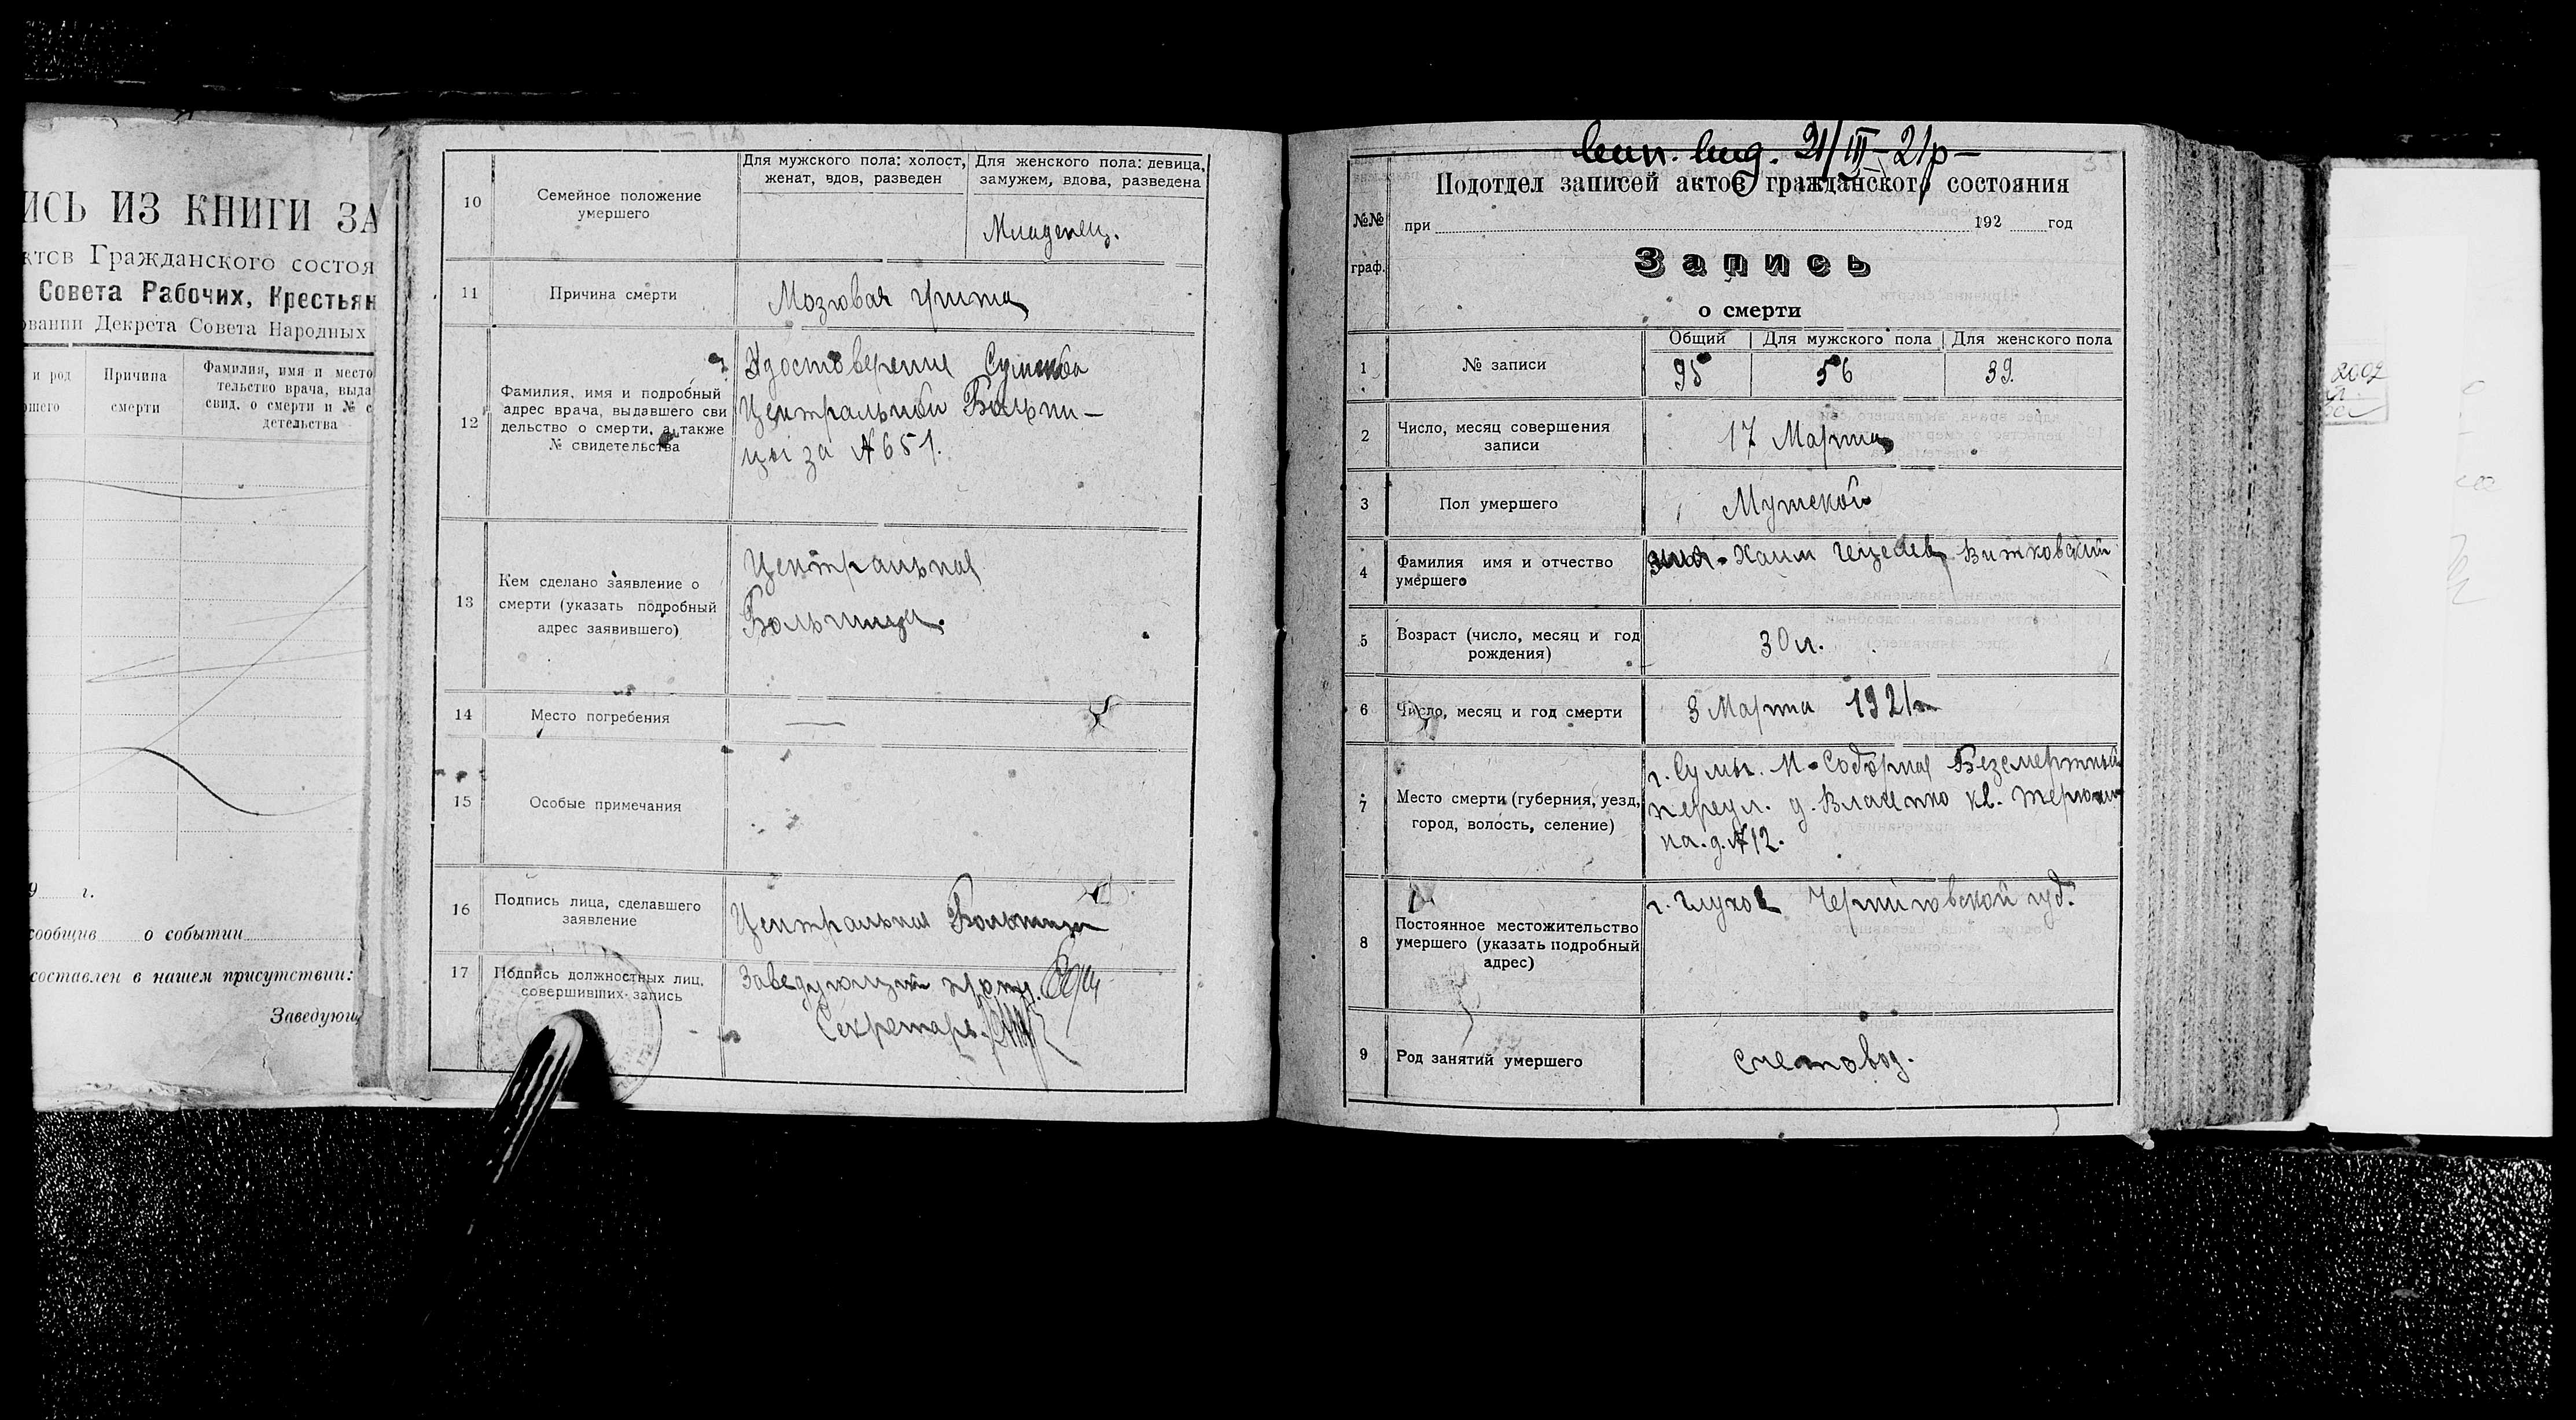 ИСЬ ИЗ КНИГИ ЗА
ктов Гражданского состоя
Совета Рабочих, Крестьян
овании Декрета Совета Народных
и род
ршего
Причина
смерти
Фамилия, имя и место
тельство врача, выда
свид. о смерти и № с
детельства
9 г.
сообщив о событии
составлен в нашем присутствии:
Заведующ
10
Семейное положение
умершего
Для мужского пола: холост,
женат, вдов, разведен
Для женского пола: девица,
замужем, вдова, разведена
Младенец.
11
Причина смерти
Мозговая
12
Фамилия, имя и подробный
адрес врача, выдавшего сви
дельство о смерти, а также
№ свидетельства
Удостоверение Сумской
Центральной Больни-
цы за № 651.
13
Кем сделано заявление о
смерти (указать подробный
адрес заявившего)
Центральная
Больница.
14
Место погребения
—
15
Особые примечания
16
Подпись лица, сделавшего
заявление
Центральная Больница
17
Подпись должностных лиц,
совершивших запись
Заведующий
Секретарь
21/III-21р-
Подотдел записей актов гражданского состояния
№№
граф.
при 192 год
Запись
о смерти
1
№ записи
Общий
Для мужского пола
Для женского пола
95
56
39.
2
Число, месяц совершения
записи
17 Марта
3
Пол умершего
Мужской
4
Фамилия имя и отчество
умершего
Хаим Гецелев Витковский
5
Возраст (число, месяц и год
рождения)
30 л.
6
Число, месяц и год смерти
3 Марта 1921
7
Место смерти (губерния, уезд,
город, волость, селение)
г. Сумы. М-Соборная Безсмертный
переул. д. Власенко кв.
на. д. №12.
8
Постоянное местожительство
умершего (указать подробный
адрес)
г. Глухов Черниговской губ.
9
Род занятий умершего
счетовод.
2002